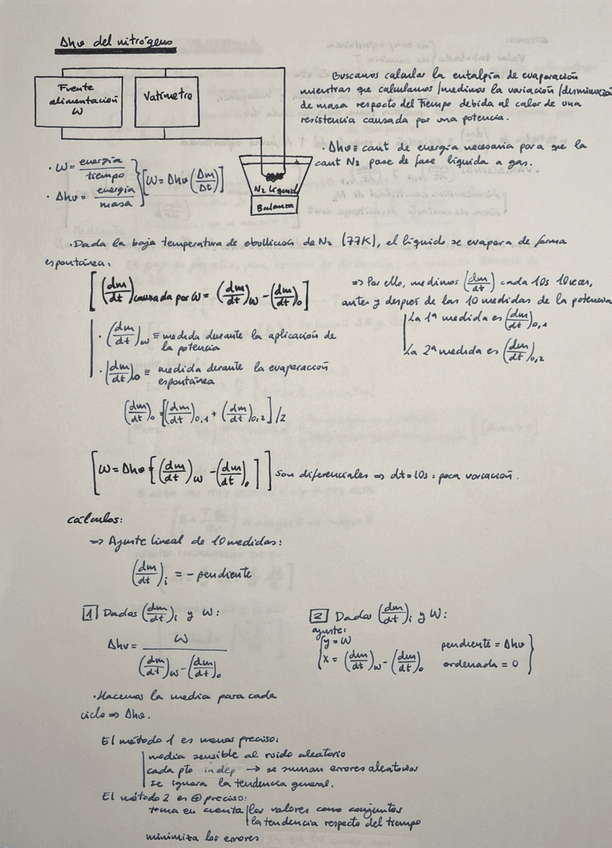 Δhv del nitrógeno
Fuente
alimentación
W
Vatímetro
N2 líquido
Balanza
Buscamos calcular la entalpía de evaporación
mientras que calculamos/medimos la variación/disminución
de masa respecto del tiempo debida al calor de una
resistencia causada por una potencia.
· Δhv ≡ cant de energía necesaria para que la
cant N2 pase de fase líquida a gas.
· W = energía/tiempo
· Δhv = energía/masa
[W = Δhv (Δm/Δt)]
· Dada la baja temperatura de ebullición de N2 (77K), el líquido se evapora de forma
espontánea:
[(dm/dt) causada por W = (dm/dt)w - (dm/dt)0]
· (dm/dt)w ≡ medida durante la aplicación de
la potencia
· (dm/dt)0 ≡ medida durante la evaporación
espontánea
(dm/dt)0 = [(dm/dt)0,1 + (dm/dt)0,2]/2
⇒ Por ello, medimos (dm/dt) cada 10s 10 veces,
antes y después de las 10 medidas de la potencia
La 1ª medida es (dm/dt)0,1
La 2ª medida es (dm/dt)0,2
[W = Δhv [(dm/dt)w - (dm/dt)0]] son diferenciales ⇒ dt = 10s : poca variación.
cálculos:
⇒ Ajuste lineal de 10 medidas:
(dm/dt)i = - pendiente
1 Dadas (dm/dt)i y W:
Δhv = W / ((dm/dt)w - (dm/dt)0)
· Hacemos la media para cada
ciclo ⇒ Δhv.
2 Dadas (dm/dt)i y W:
ajuste:
y = W
x = (dm/dt)w - (dm/dt)0
pendiente = Δhv
ordenada = 0
El método 1 es menos preciso:
media sensible al ruido aleatorio
cada pto indep → se suman errores aleatorios
se ignora la tendencia general.
El método 2 es ⊕ preciso:
toma en cuenta los valores como conjuntos
la tendencia respecto del tiempo
minimiza los errores